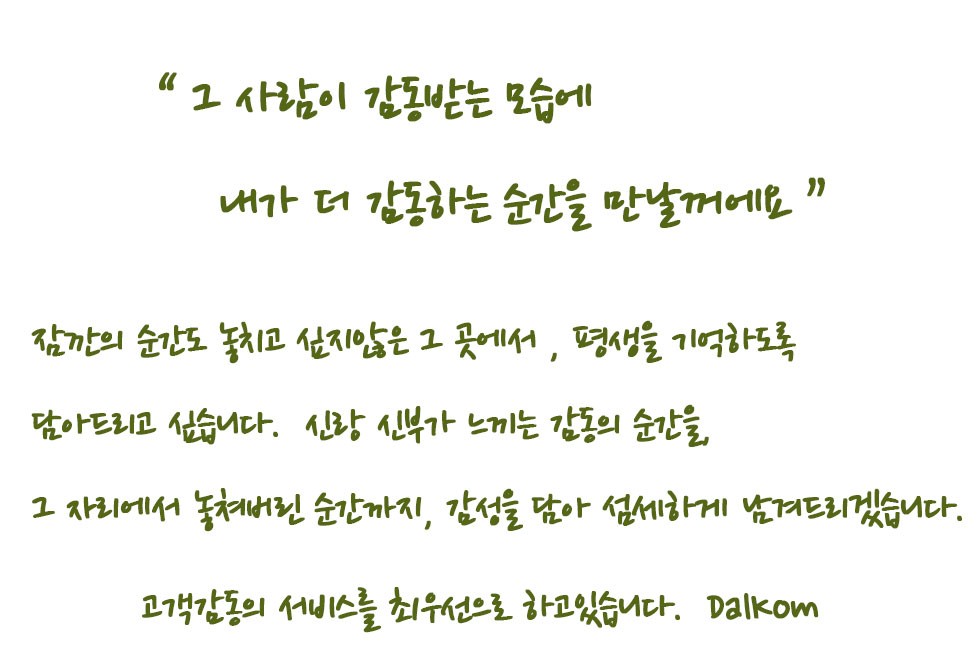 “ 그 사람이 감동받는 모습에
내가 더 감동하는 순간을 만날꺼에요 ”
잠깐의 순간도 놓치고 싶지않은 그 곳에서 , 평생을 기억하도록
담아드리고 싶습니다. 신랑 신부가 느끼는 감동의 순간을,
그 자리에서 놓쳐버린 순간까지, 감성을 담아 섬세하게 남겨드리겠습니다.
고객감동의 서비스를 최우선으로 하고있습니다. Dalkom